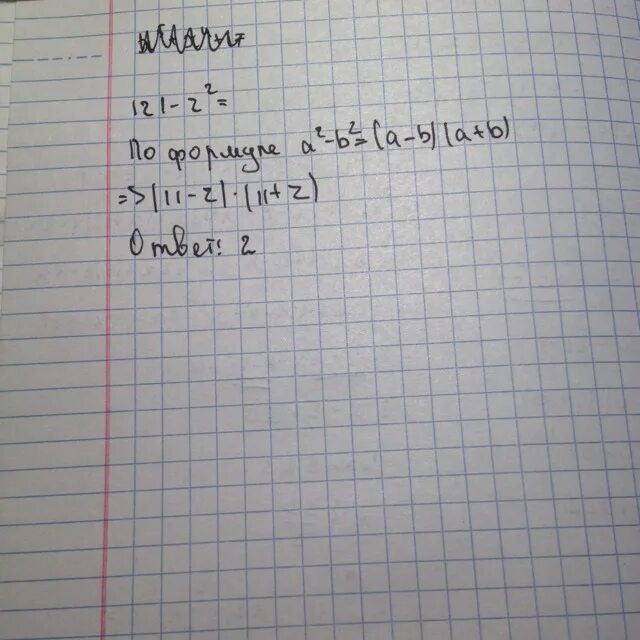 121-z²=
По формуле a²-b²=(a-b)(a+b)
=>(11-z)·(11+z)
Ответ: 2